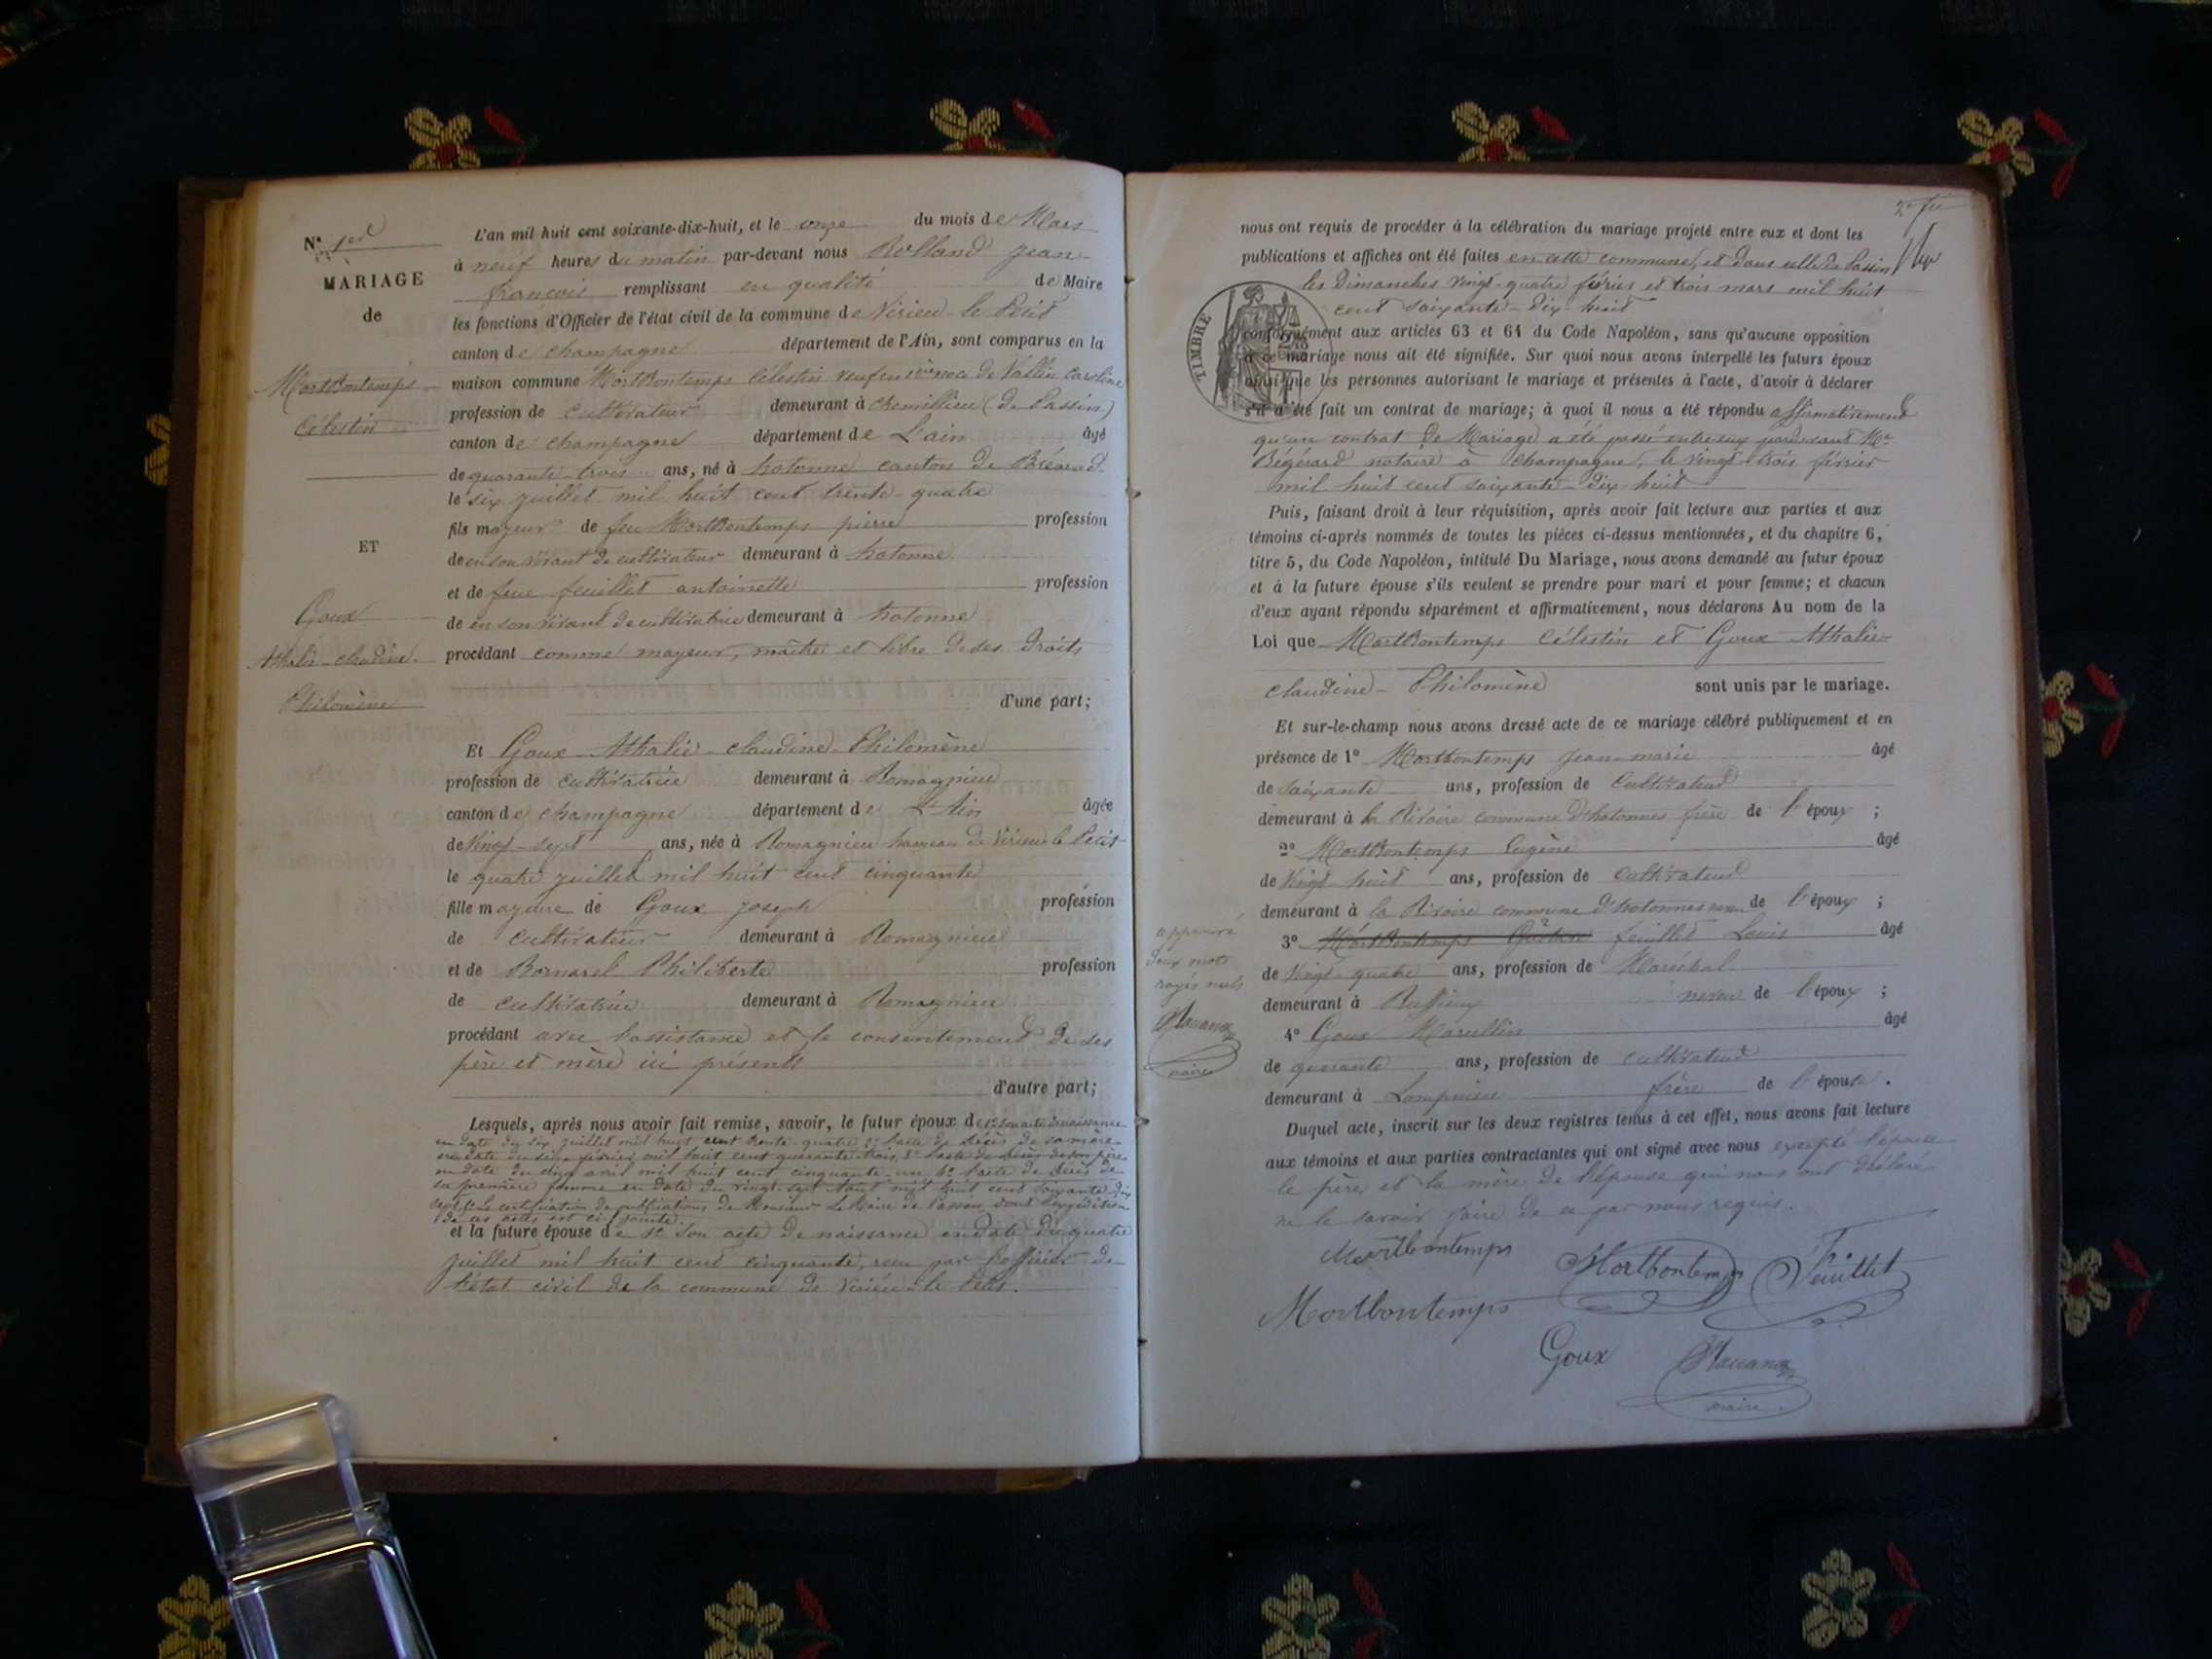 N° 1er
MARIAGE
de
MortBontemps
Célestin
ET
Goux
Athalie-claudine-
Philomène
L'an mil huit cent soixante-dix-huit, et le onze du mois de Mars
à neuf heures du matin par-devant nous Rolland jean-
françois remplissant en qualité de Maire
les fonctions d'Officier de l'état civil de la commune de Virieu-le-Petit
canton de champagne département de l'Ain, sont comparus en la
maison commune MortBontemps Célestin veuf en 1ère noce de Vallin Caroline
profession de cultivateur demeurant à chemillieu (de Passin)
canton de champagne département de L'ain âgé
de quarante-trois ans, né à hotonne canton de Brénod
le six juillet mil huit cent trente-quatre
fils mayeur de feu MortBontemps pierre profession
de en son vivant de cultivateur demeurant à hotonne
et de feue feuillet antoinette profession
de en son vivant de cultivatrice demeurant à hotonne
procédant comme mayeur, maître et libre de ses droits
d'une part;
Et Goux Athalie-claudine-Philomène
profession de cultivatrice demeurant à Romagnieu
canton de champagne département de L'Ain âgée
de Vingt-sept ans, née à Romagnieu hameau de Virieu le Petit
le quatre juillet mil huit cent cinquante
fille mayeure de Goux joseph profession
de cultivateur demeurant à Romagnieu
et de Bornarel Philiberte profession
de cultivatrice demeurant à Romagnieu
procédant avec l'assistance et le consentement de ses
père et mère ici présents
d'autre part;
Lesquels, après nous avoir fait remise, savoir, le futur époux de 1° son acte de naissance
en date du six juillet mil huit cent trente-quatre 2° l'acte de décès de sa mère
en date du seize février mil huit cent quarante-trois, 3° l'acte de décès de son père
en date du cinq avril mil huit cent cinquante-un, 4° l'acte de décès de
sa première femme en date du vingt-sept août mil huit cent soixante-dix
sept, 5° le certification de publications de Monsieur Le Maire de Passin dont l'expédition
de ces actes est ci-jointe.
et la future épouse de 1° Son acte de naissance en date du quatre
juillet mil huit cent cinquante, reçu par l'officier de
l'état civil de la commune de Virieu-le-Petit.
nous ont requis de procéder à la célébration du mariage projeté entre eux et dont les
publications et affiches ont été faites en cette commune, et dans celle de Passin
les Dimanches vingt-quatre février et trois mars mil huit
cent soixante-dix-huit
TIMBRE
conformément aux articles 63 et 64 du Code Napoléon, sans qu'aucune opposition
à ce mariage nous ait été signifiée. Sur quoi nous avons interpellé les futurs époux
ainsi que les personnes autorisant le mariage et présentes à l'acte, d'avoir à déclarer
s'il a été fait un contrat de mariage; à quoi il nous a été répondu affirmativement
qu'un contrat de Mariage a été passé entre eux pardevant Me
Bégérard notaire à Champagne, le vingt-trois février
mil huit cent soixante-dix-huit
Puis, faisant droit à leur réquisition, après avoir fait lecture aux parties et aux
témoins ci-après nommés de toutes les pièces ci-dessus mentionnées, et du chapitre 6,
titre 5, du Code Napoléon, intitulé Du Mariage, nous avons demandé au futur époux
et à la future épouse s'ils veulent se prendre pour mari et pour femme; et chacun
d'eux ayant répondu séparément et affirmativement, nous déclarons Au nom de la
Loi que MortBontemps Célestin et Goux Athalie-
claudine-Philomène sont unis par le mariage.
Et sur-le-champ nous avons dressé acte de ce mariage célébré publiquement et en
présence de 1° Mortbontemps jean-marie âgé
de Soixante ans, profession de Cultivateur
demeurant à la Rivoire commune d'hotonnes frère de l'époux ;
2° MortBontemps Eugène âgé
de Vingt-huit ans, profession de Cultivateur
demeurant à la Rivoire commune d'hotonnes neveu de l'époux ;
3° MortBontemps Gustave feuillet Louis âgé
de Vingt-quatre ans, profession de Maréchal
demeurant à Ruffieux neveu de l'époux ;
4° Goux Marcellin âgé
de quarante ans, profession de cultivateur
demeurant à Lompnieu frère de l'épouse .
Duquel acte, inscrit sur les deux registres tenus à cet effet, nous avons fait lecture
aux témoins et aux parties contractantes qui ont signé avec nous excepté l'épouse
le père, et la mère de l'épouse qui nous ont déclaré
ne le savoir faire de ce par nous requis.
approuvé
deux mots
rayés nuls
maire
Mortbontemps
Mortbontemps
Feuillet
Mortbontemps
Goux
maire